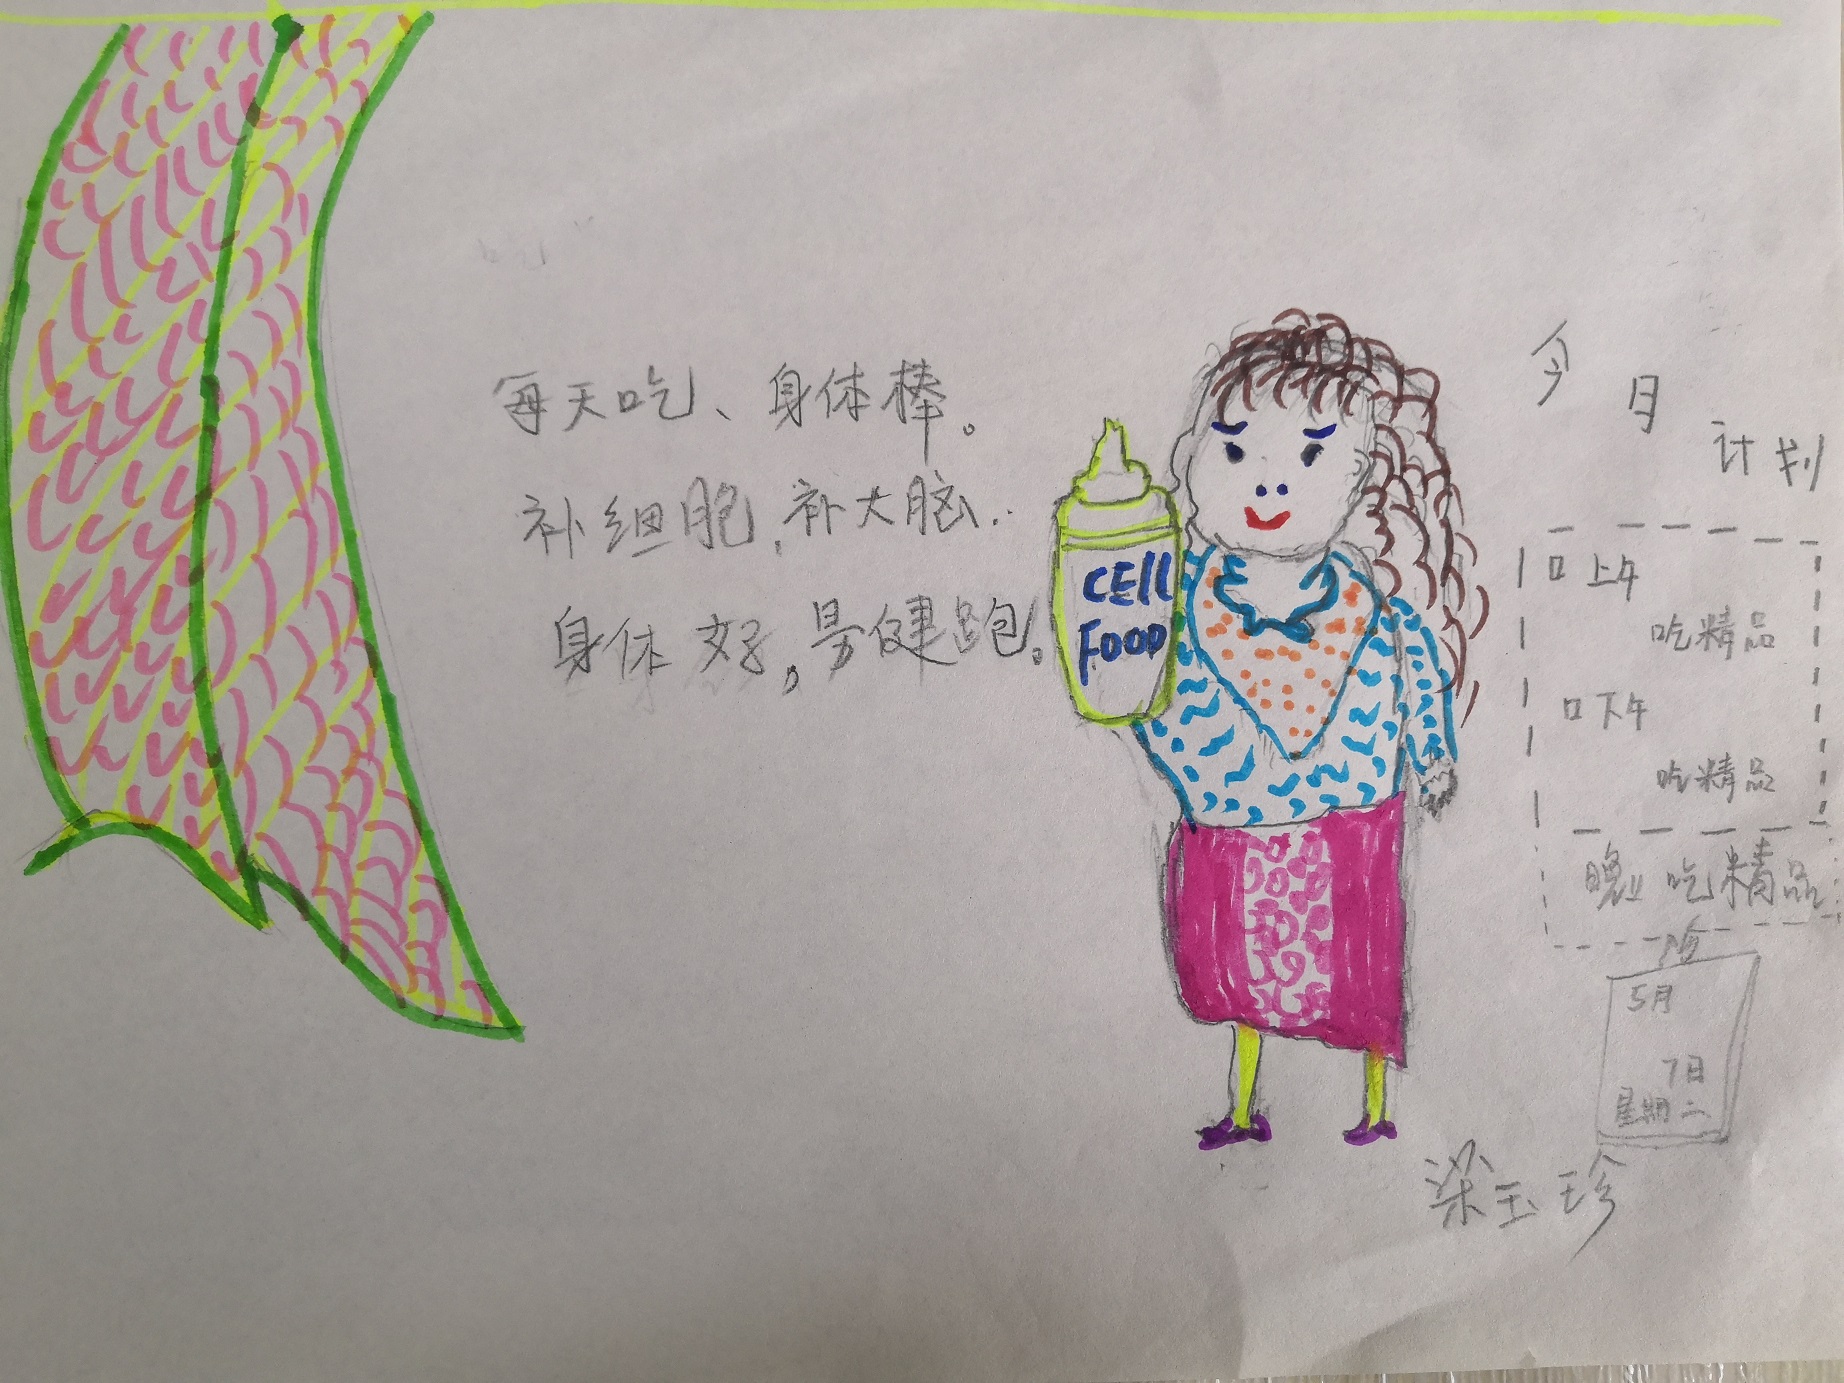 每天吃、身体棒。
补细胞,补大脑..
身体好,易健跑。
CEll
FOOD
今月计划
口上午
吃精品
口下午
吃精品
晚上吃精品
5月
7日
星期二
梁玉珍